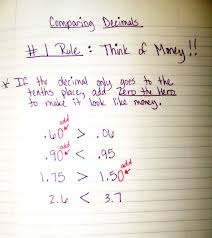 Comparing Decimals
#1 Rule: Think of Money!!
* If the decimal only goes to the
tenths place, add Zero the Hero
to make it look like money.
add
.60 > .06
add
.90 < .95
add
1.75 > 1.50
2.6 < 3.7